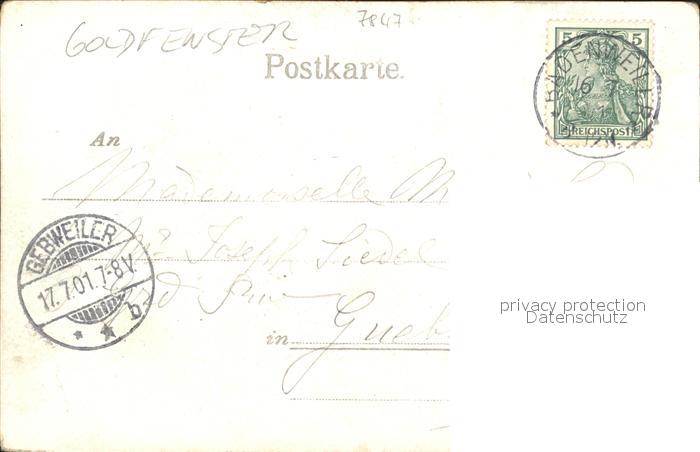 GOLDFENSTER
7847
Postkarte.
5 5
BADENWEILER
16 7
REICHSPOST
An
Mademoiselle M
Joseph Siedel
GEBWEILER
17.7.01.7-8V.
b
in Gueb
privacy protection
Datenschutz